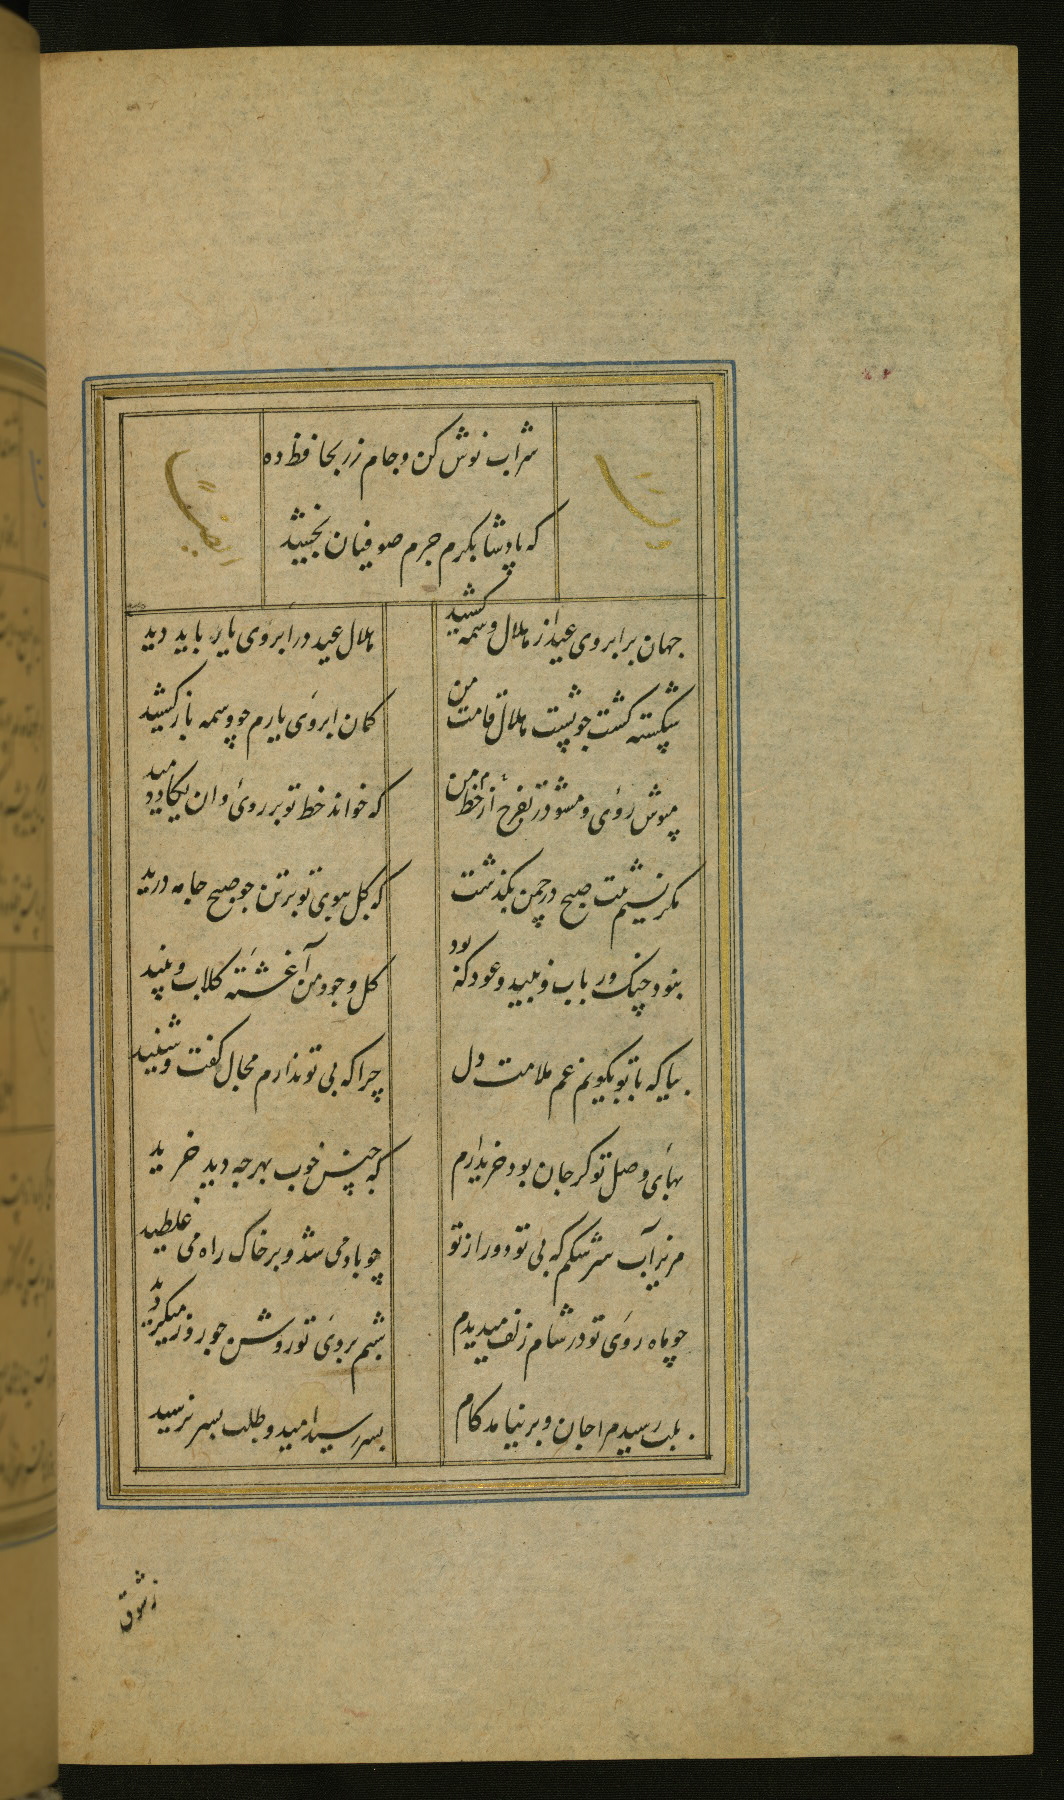 شراب نوش کن و جام زر بحافظ ده
که پادشا بکرم جرم صوفیان بخشید
جهان بر ابروی عید از هلال وسمه کشید
هلال عید در ابروی یار باید دید
شکسته کشت چو پشت هلال قامت من
کمان ابروی یارم چو وسمه باز کشید
مپوش روی و مشو در تفرج از خط من
که خواند خط تو بر روی و ان یکاد دمید
مکر نسیم تنت صبح در چمن بکذشت
که کل ببوی تو بر تن چو صبح جامه درید
نبود چنک و رباب و نبید و عود که بود
کل وجود من آغشته کلاب و نبید
بیا که با تو بکویم غم ملامت دل
چرا که بی تو ندارم مجال کفت و شنید
بهای وصل تو کر جان بود خریدارم
که جنس خوب بهر چه دید خرید
مریز آب سرشکم که بی تو دور از تو
چو باد می شد و بر خاک راه می غلطید
چو ماه روی تو در شام زلف میدیدم
شبم بروی تو روشن چو روز میکردید
بلب رسید مرا جان و بر نیامد کام
بسر رسید امید و طلب بسر نرسید
ز شوق